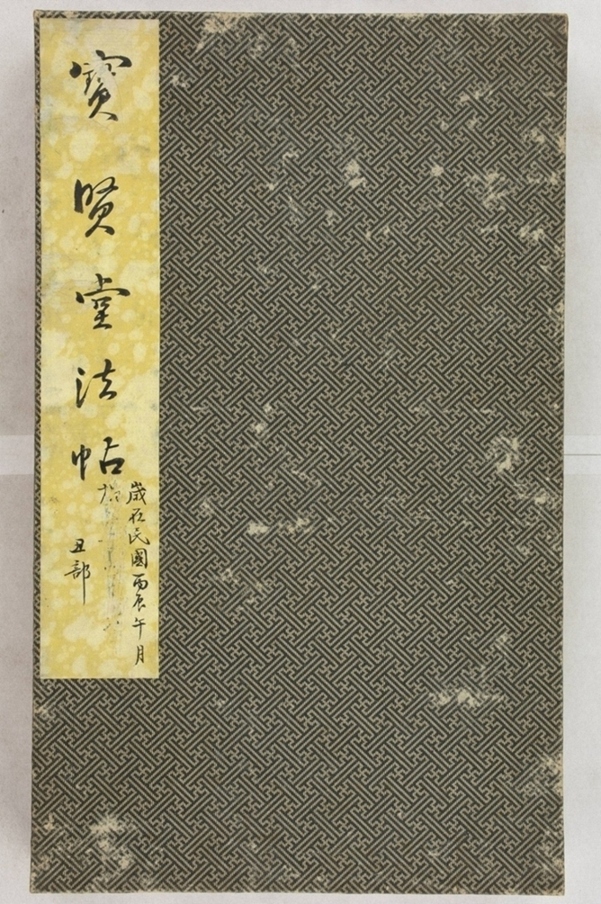 寳賢堂法帖
歲在民國丙辰午月
丑部